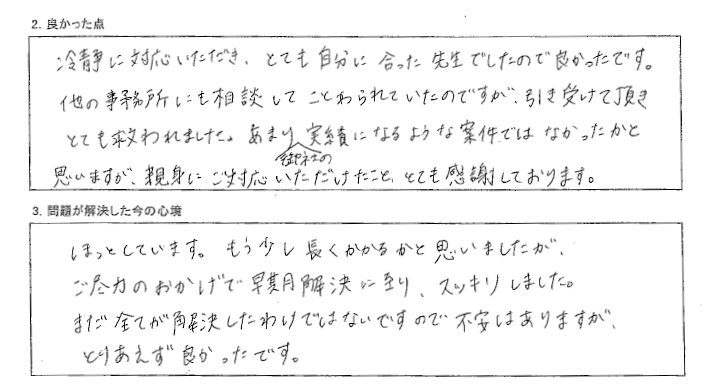 2. 良かった点
冷静に対応いただき、とても自分に合った先生でしたので良かったです。
他の事務所にも相談してことわられていたのですが、引き受けて頂き
とても救われました。あまり実績になるような案件ではなかったかと
御社の
思いますが、親身にご対応いただけたこと、とても感謝しております。
3. 問題が解決した今の心境
ほっとしています。もう少し長くかかるかと思いましたが、
ご尽力のおかげで早期解決に至り、スッキリしました。
まだ全てが解決したわけではないですので不安はありますが、
とりあえず良かったです。